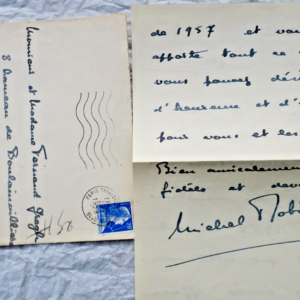 Monsieur et Madame Fernand Gregh
8 hameau de Boulainvilliers
PARIS
de 1957 et vou
apporte tout ce
vous pouvez dési
d'heureux et d'
pour vous et les
Bien amicalement
fidèle et dev
Michel